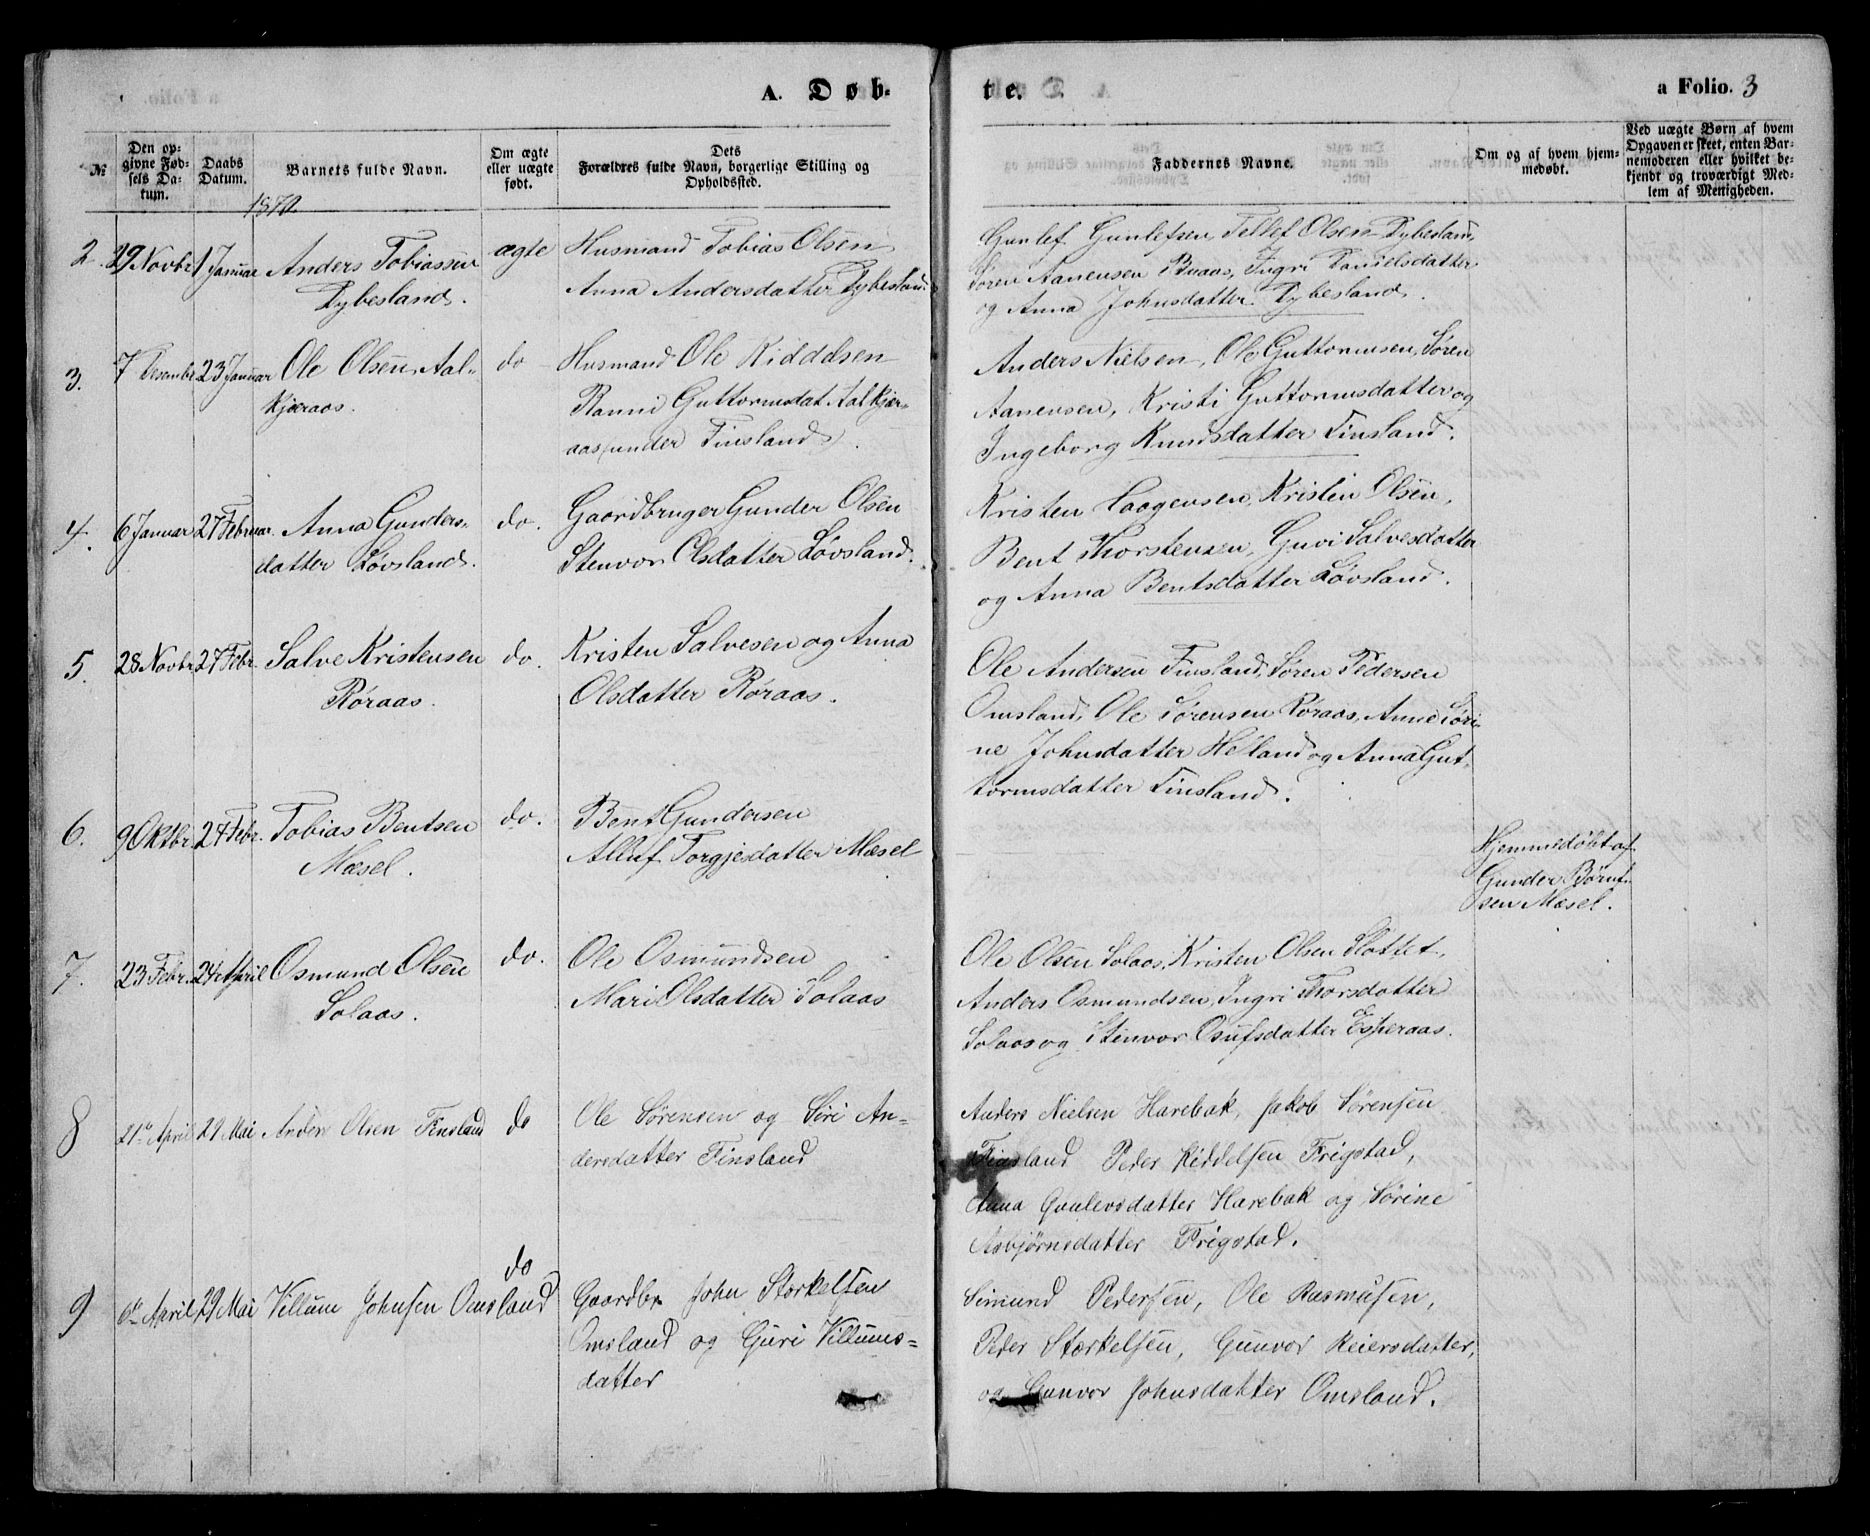 A. Døb-
te.
a Folio. 3
№
Den op-
givne Fød-
sels Da-
tum.
Daabs
Datum.
Barnets fulde Navn.
Om ægte
eller uægte
født.
Dets
Forældres fulde Navn, borgerlige Stilling og
Opholdssted.
Faddernes Navne.
Om og af hvem hjem-
medøbt.
Ved uægte Børn af hvem
Opgaven er skeet, enten Bar-
nemoderen eller hvilket be-
kjendt og troværdigt Med-
lem af Menigheden.
1870.
2. 29 Novbr 1 Januar Anders Tobiassen
Dybesland.
ægte
Husmand Tobias Olsen
Anna Andersdatter Dybesland.
Gunlef Gunlefsen, Tellef Olsen Dybesland,
Søren Aanensen Buaas, Ingri Danielsdatter
og Anna Johnsdatter Dybesland.
3. 7 Desembr 23 Januar Ole Olsen Aal-
kjæraas.
do
Husmand Ole Kiddelsen
Ranni Guttormsdat. Aalkjær-
aas under Finsland.
Anders Nielsen, Ole Guttormsen, Søren
Aanensen, Kristi Guttormsdatter og
Ingeborg Knudsdatter Finsland.
4. 6 Januar 27 Februar. Anna Gunders-
datter Løvsland.
do.
Gaardbruger Gunder Olsen
Stenvor Olsdatter Løvsland.
Kristen Haagensen, Kristen Olsen,
Bent Thorstensen, Guri Salvesdatter
og Anna Bentsdatter Løvsland.
5. 28 Novbr 27 Febr. Salve Kristensen
Røraas.
do.
Kristen Salvesen og Anna
Olsdatter Røraas.
Ole Andersen Finsland, Søren Pedersen
Omsland, Ole Sørensen Røraas, Anne Søri-
ne Johnsdatter Helland og Anna Gut-
tormsdatter Finsland.
6. 9 Oktbr. 27 Febr. Tobias Bentsen
Mæsel.
do.
Bent Gundersen
Torgjesdatter Mæsel
Hjemmedøbt af
Gunder Børuf-
sen Mæsel.
7. 23 Febr. 24 April Osmund Olsen
Solaas.
do.
Ole Osmundsen
Mari Olsdatter Solaas
Ole Olsen Solaas, Kristen Olsen Slottet,
Anders Osmundsen, Ingri Thorsdatter
Solaas og Stenvor Osufsdatter Esperaas.
8 21de April 29 Mai Anders Olsen Finsland
do
Ole Sørensen og Siri An-
dersdatter Finsland
Anders Nielsen Harebak, Jakob Sørensen
Finsland Peder Kiddelsen Frigstad,
Anna Gunlevsdatter Harebak og Sørine
Asbjørnsdatter Frigstad.
9 6te April 29 Mai Villum Johnsen Omsland
do
Gaardbr. John Stærkelsen
Omsland og Guri Villums-
datter
Simund Pedersen, Ole Rasmusen,
Peder Stærkelsen, Gunvor Reiersdatter,
og Gunvor Johnsdatter Omsland.